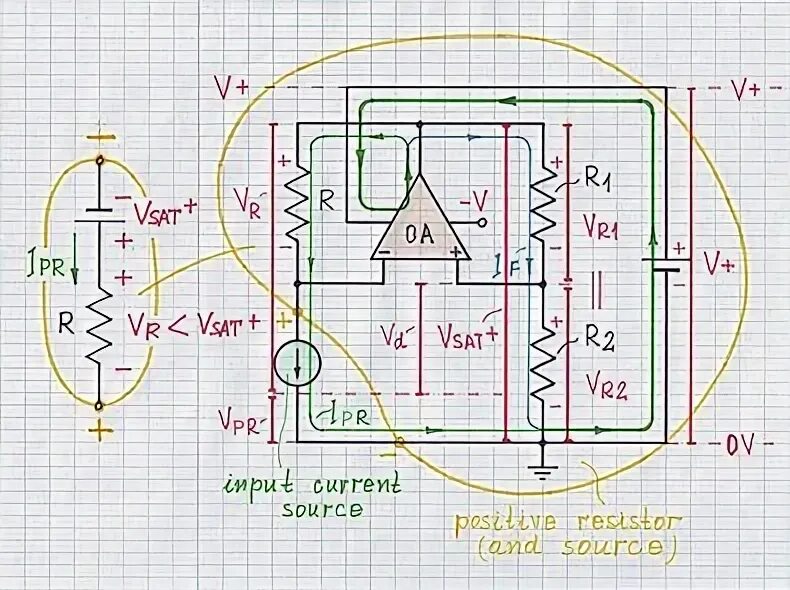 V+
V+
+
VR
-
R
-V
OA
-
+
+
R1
VR1
-
IF
+
-
V+
-
VSAT+
+
+
IPR
R
VR < VSAT+
-
+
+
Vd
VSAT+
+
R2
VR2
-
VPR
IPR
-
-0V-
input current
source
positive resistor
(and source)